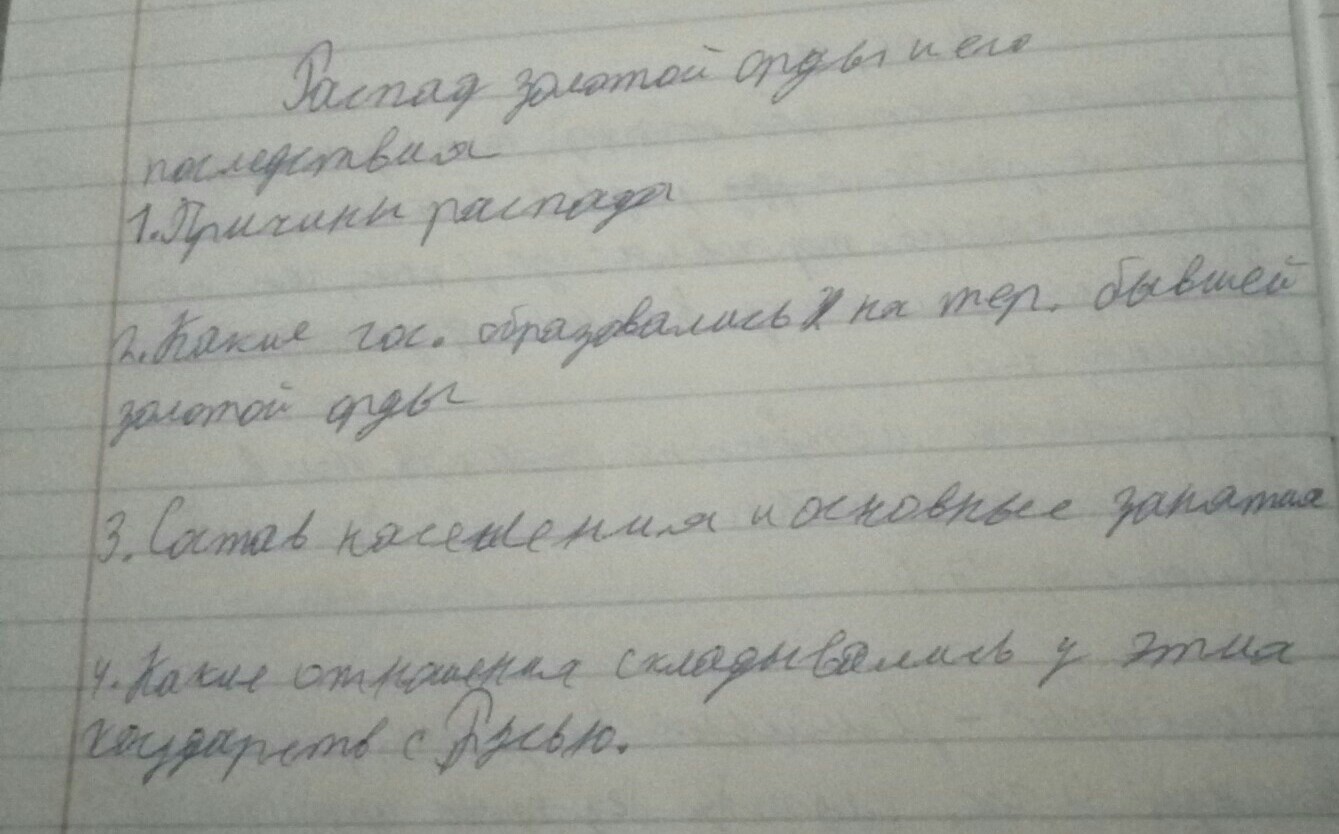 Распад золотой орды и его
последствия
1. Причины распада
2. Какие гос. образовались на тер. бывшей
золотой орды
3. Состав населения и основные занятия
4. Какие отношения складывались у этих
государств с Русью.